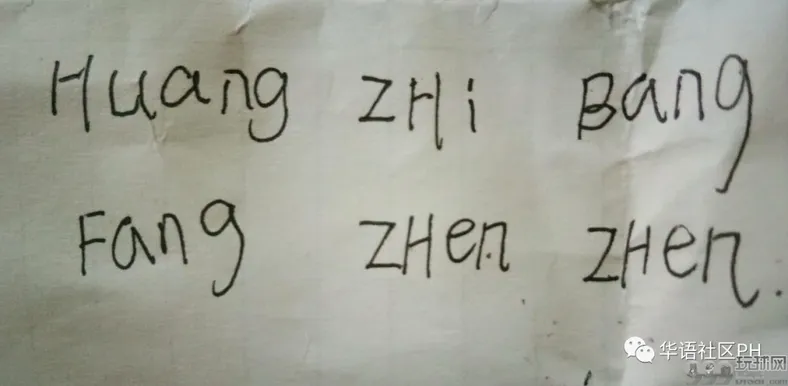 Huang ZHi Bang
Fang ZHen ZHen.
华语社区PH